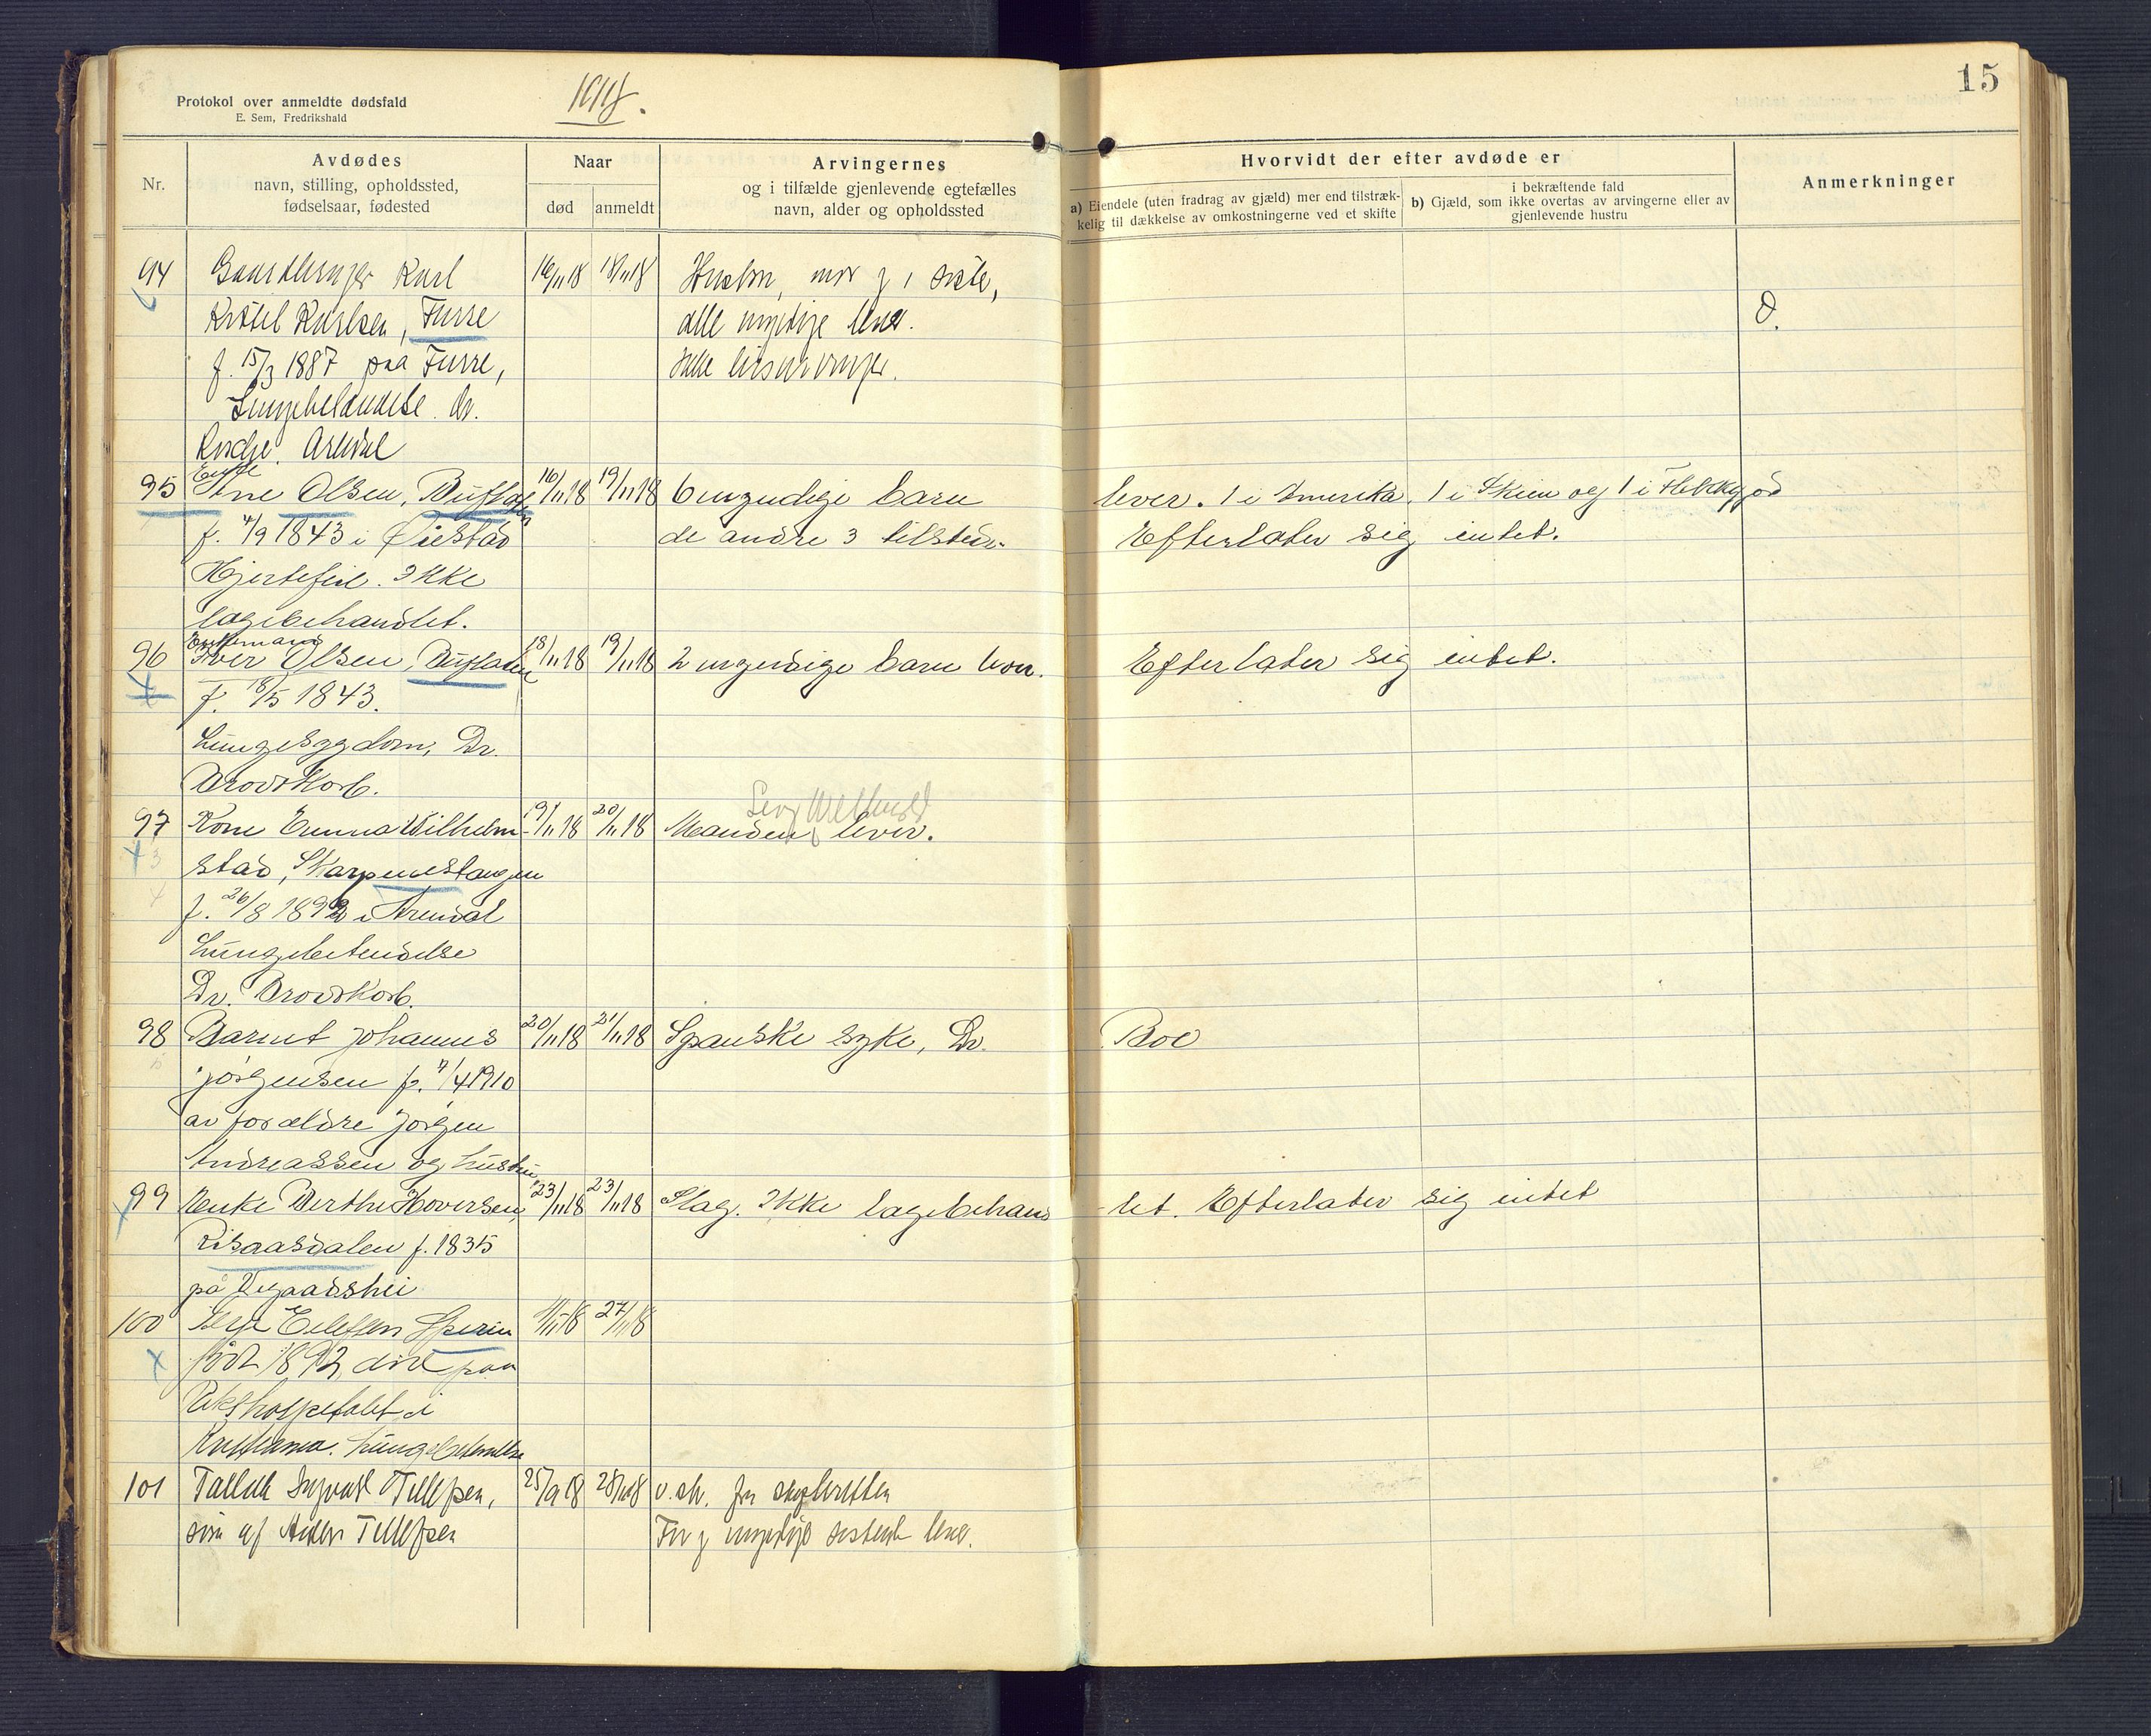 15
Protokol over anmeldte dødsfald
E. Sem, Fredrikshald
1918.
Nr.
Avdødes
navn, stilling, opholdssted,
fødselsaar, fødested
Naar
død
anmeldt
Arvingernes
og i tilfælde gjenlevende egtefælles
navn, alder og opholdssted
Hvorvidt der efter avdøde er
a) Eiendele (uten fradrag av gjæld) mer end tilstræk-
kelig til dækkelse av omkostningerne ved et skifte
i bekræftende fald
b) Gjæld, som ikke overtas av arvingerne eller av
gjenlevende hustru
Anmerkninger
94 Karl 16/11 18 18/11 18 mor
Karlsen, Furre alle myndige lever.
f. 15/3 1887 paa Furre, ikke livsarvinger.
Lungebetændelse. dr.
Arendal
Enke
95 Ane Olsen, 16/11 18 19/11 18 6 myndige barn lever. 1 i Amerika, 1 i Skien og 1 i
f. 4/9 1843 i Øiestad de andre 3 tilsteds. Efterlater sig intet.
Hjertefeil. Ikke
lægebehandlet.
Enkemand
96 Iver Olsen, 18/11 18 19/11 18 2 myndige barn lever. Efterlater sig intet.
f. 18/5 1843.
Lungesygdom, Dr.
Brodtkorb.
97 Kone Emma Wilhelm- 19/11 18 20/11 18 Manden lever.
stad, Skarpnestangen
f. 26/8 1892 i Arendal
Lungebetendelse
Dr. Brodtkorb.
98 Barnet Johannes 20/11 18 21/11 18 Spanske syke, Dr. Boe
Jørgensen f. 7/4 1910
av forældre Jørgen
Andreassen og hustru
99 Enke Berthe Hoversen, 23/11 18 23/11 18 Slag. Ikke lægebehand- let. Efterlater sig intet
Risaasdalen f. 1835
på Vegaardshei
100 Terje Eilefsen 11/11 18 27/11 18
født 1892, død paa
Rikshospitalet i
Kristiania. Lungebetendelse
101 Ingvald Tellefsen, 25/9 18 28/11 18
søn af Tellefsen Far